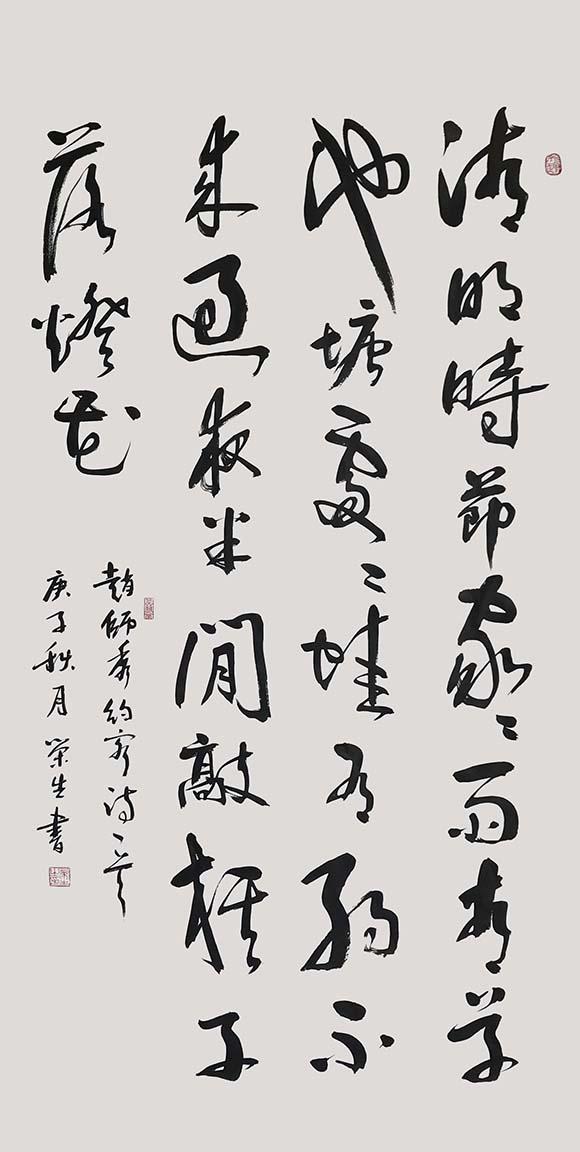 清明時節家〻雨青草
池塘處〻蛙有約不
来過夜半閒敲棋子
落燈花
趙師秀約客詩一首
庚子秋月榮生書